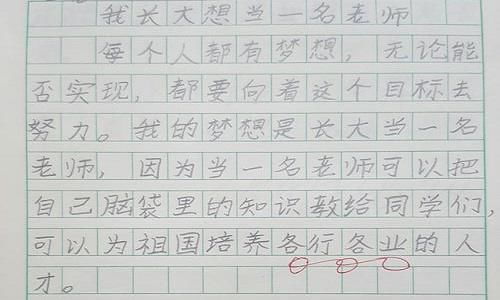 我长大想当一名老师
每个人都有梦想，无论能
否实现，都要向着这个目标去
努力。我的梦想是长大当一名
老师，因为当一名老师可以把
自己脑袋里的知识教给同学们，
可以为祖国培养各行各业的人
才。